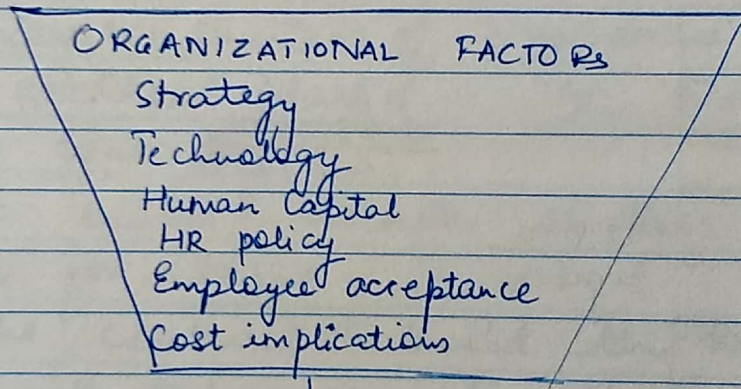 ORGANIZATIONAL FACTORs
Strategy
Technology
Human Capital
HR policy
Employee acceptance
Cost implications